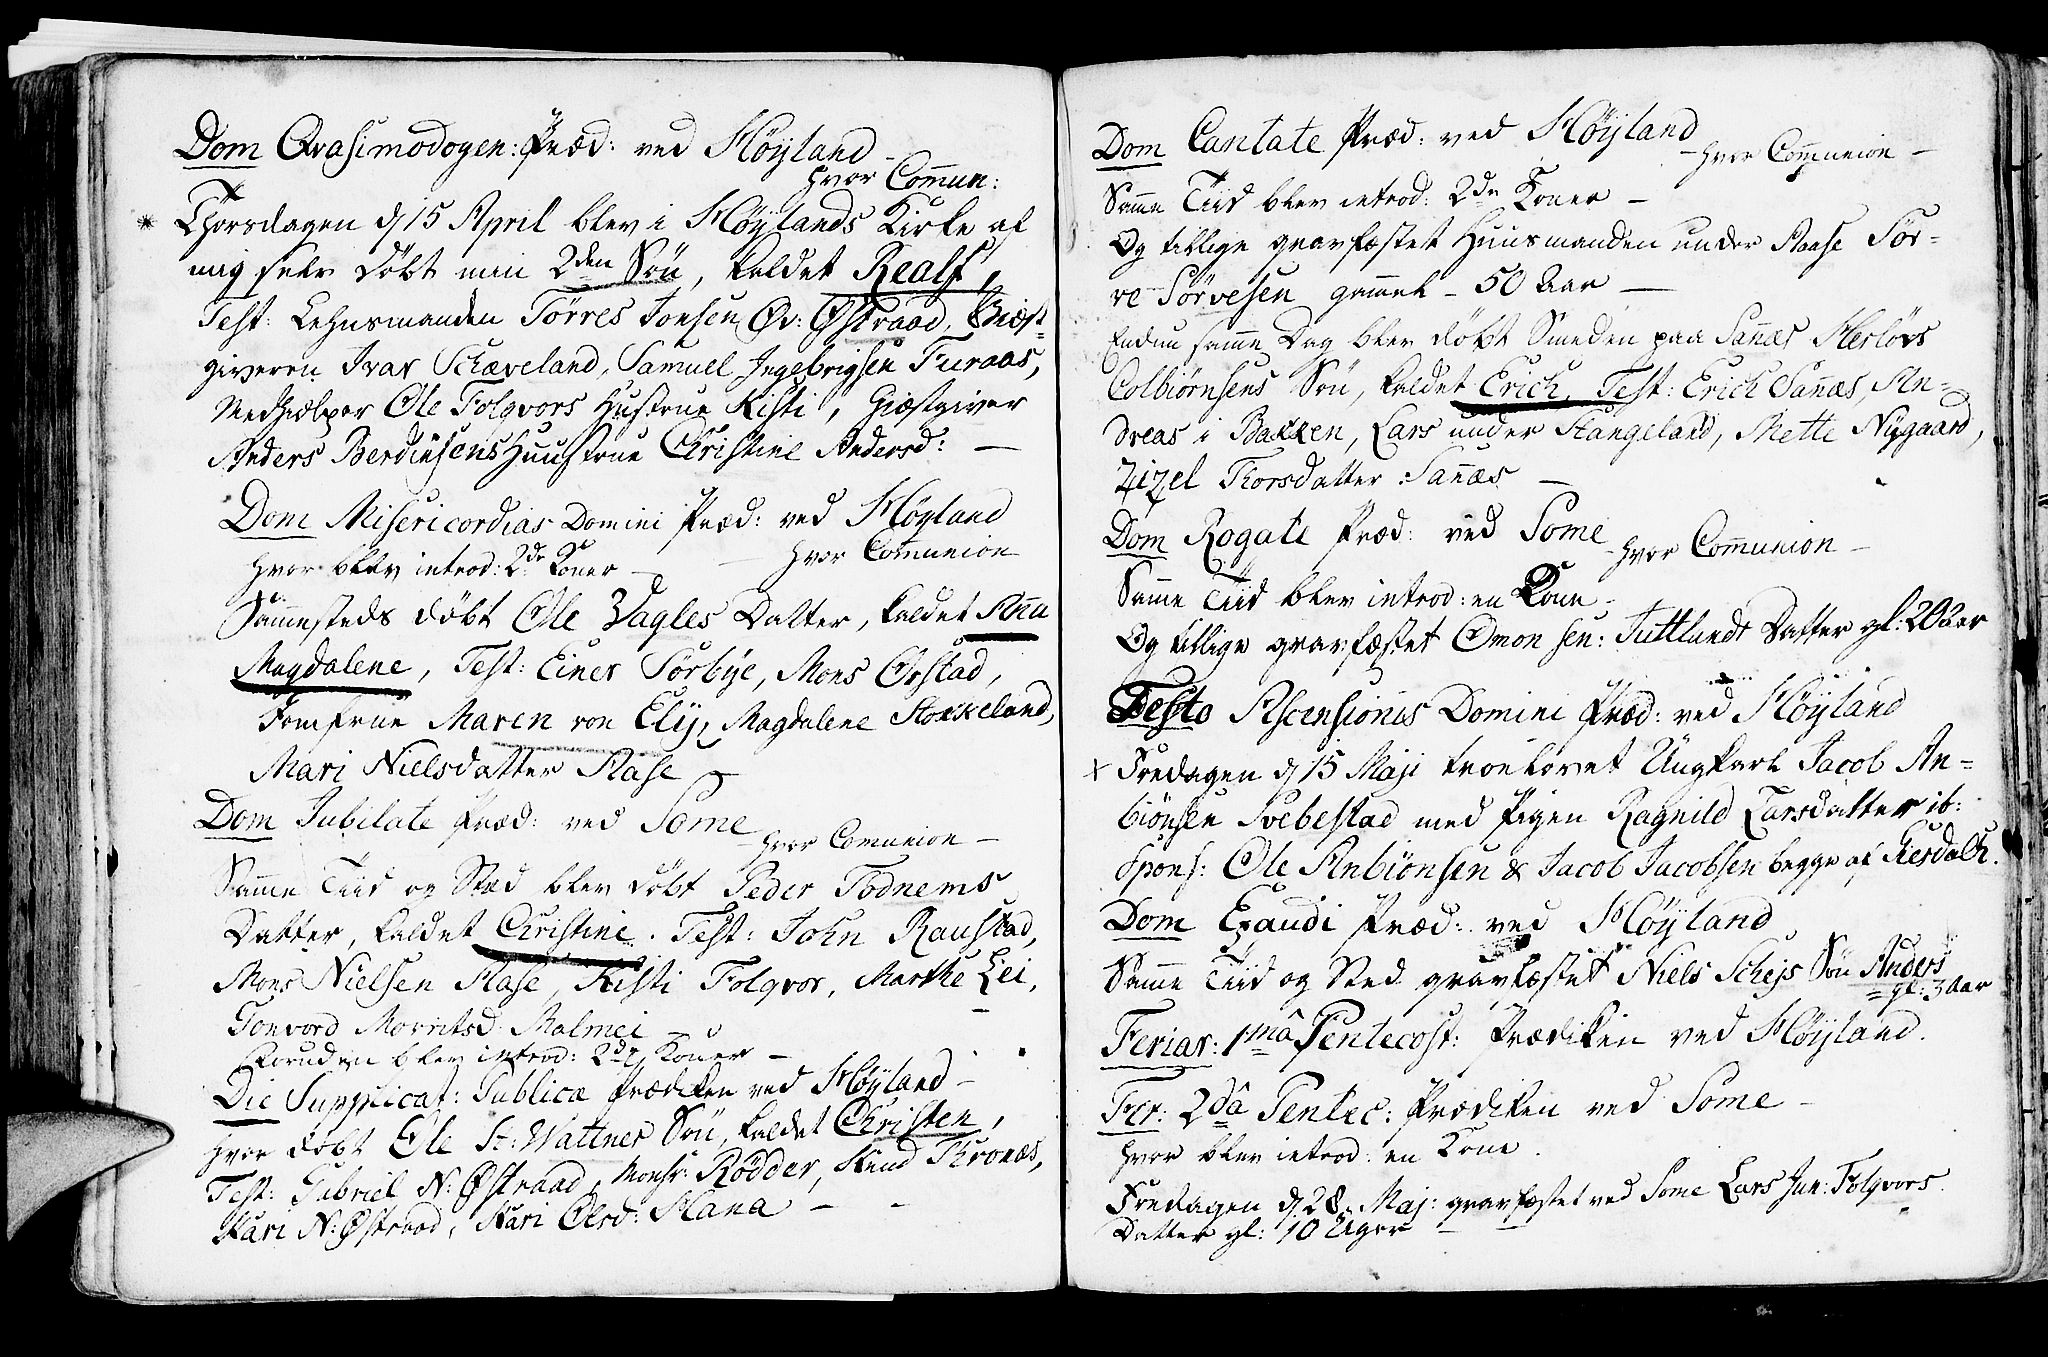 Dom Qvasimodogen: Præd: ved Høyland
hvor Comun:
* Thorsdagen d 15 April blev i Høylands Kirke af
mig selv døbt min 2den Søn, kaldet Realf,
Test: Lehnsmanden Tørres Jonsen Øv: Østraad, Giæst-
giveren Ivar Schæveland, Samuel Ingebrigsen Furaas,
Medhielper Ole Folqvors Hustrue Kisti, Giæstgiver
Anders Berdinsens Huustrue Christine Andersd: —
Dom Misericordias Domini Præd: ved Høyland
hvor Communion
hvor blev introd: 2de Koner —
Sammesteds døbt Ole Vagles Datter, kaldet Anna
Magdalene, Test: Einer Sørbye, Mons Orstad,
Jomfrue Maren von Ely, Magdalene Stokkeland,
Mari Nielsdatter Aase
Dom Jubilate Præd: ved Some
hvor Comunion —
Samme Tiid og Stæd blev døbt Peder Todnems
Datter, kaldet Christine. Test: John Raustad,
Mons Nielsen Aase, Kisti Folqvor, Marthe Lei,
Gonvord Morritsd: Malmei —
Foruden blev introd: 2de Koner —
Die Supplicat: Publicæ Prædiken ved Høyland —
hvor døbt Ole St: Wattnes Søn, kaldet Christen,
Test: Gabriel N: Østraad, Monsr: Rødder, Knud Thronæs,
Kari N: Østraad, Kari Olsd: Hana —
Dom Cantate Præd: ved Høyland
— hvor Communion —
Samme Tiid blev introd: 2de Koner —
Og tillige gravfæstet Huusmanden under Aase Sør-
ve Sørvesen gammel — 50 Aar —
Endnu samme Dag blev døbt Smeden paa Sannes Herlövs
Colbiørnsens Søn, kaldet Erich, Test: Erich Sannæs, An-
dreas i Bakken, Lars under Stangeland, Mette Nygaard,
Zizel Thorsdatter Sannæs —
Dom Rogate Præd: ved Some
— hvor Communion —
Samme Tiid blev introd: en Kone —
Og tillige gravfæstet Omon sen: Juttlands Datter gl: 20 Aar
Festo Ascensionis Domini Præd: ved Høyland
x Fredagen d 15 Maji trolovet Ungkarl Jacob An-
biönsen Svebestad med Pigen Ragnild Larsdatter ib:
Spons: Ole Anbiönsen & Jacob Jacobsen begge af Giesdal.
Dom Exaudi Præd: ved Høyland
Samme Tiid og Sted gravfæstet Niels Schejs Søn Anders
= gl: 3 Aar
Feriar: 1mâ Pentecost: Prædiken ved Høyland.
Fer: 2dâ Pentec: Prædiken ved Some —
hvor blev introd: en Kone.
Fredagen d 28 Maj: gravfæstet ved Some Lars Jun: Folqvors
Datter gl: 10 Uger —